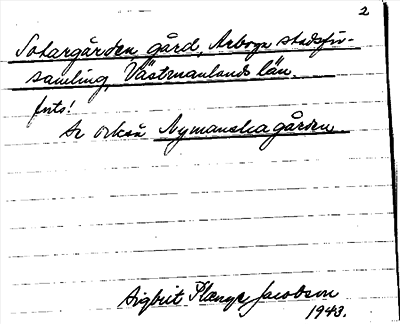 2
Sotargården gård, Arboga stadsför-
samling, Västmanlands län.
forts!
Se också Nymanska gården.
Sigbrit Plænge Jacobson
1943.